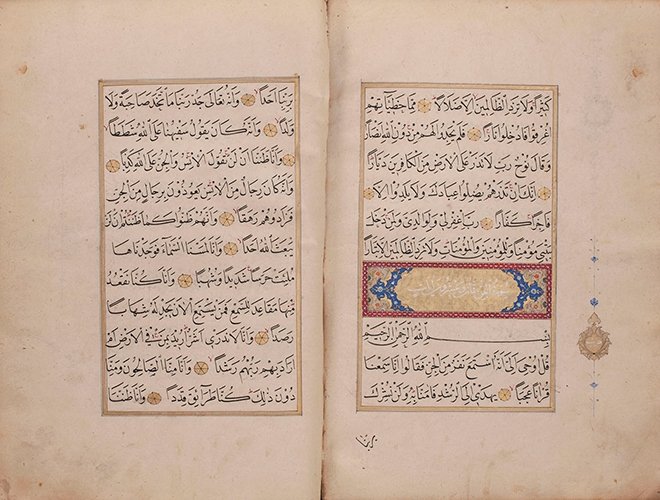 كَثِيرًا وَلَا تَزِدِ الظَّالِمِينَ اِلَّا ضَلَالًا مِمَّا خَطِيئَاتِهِمْ
اُغْرِقُوا فَاُدْخِلُوا نَارًا فَلَمْ يَجِدُوا لَهُمْ مِنْ دُونِ اللّٰهِ اَنْصَارًا
وَقَالَ نُوحٌ رَبِّ لَا تَذَرْ عَلَى الْاَرْضِ مِنَ الْكَافِرِينَ دَيَّارًا
اِنَّكَ اِنْ تَذَرْهُمْ يُضِلُّوا عِبَادَكَ وَلَا يَلِدُوا اِلَّا
فَاجِرًا كَفَّارًا رَبِّ اغْفِرْ لِي وَلِوَالِدَيَّ وَلِمَنْ دَخَلَ
بَيْتِيَ مُؤْمِنًا وَلِلْمُؤْمِنِينَ وَالْمُؤْمِنَاتِ وَلَا تَزِدِ الظَّالِمِينَ اِلَّا تَبَارًا
سورة الجن ثمان وعشرون
بِسْمِ اللّٰهِ الرَّحْمٰنِ الرَّحِيمِ
قُلْ اُوحِيَ اِلَيَّ اَنَّهُ اسْتَمَعَ نَفَرٌ مِنَ الْجِنِّ فَقَالُوا اِنَّا سَمِعْنَا
قُرْاٰنًا عَجَبًا يَهْدِي اِلَى الرُّشْدِ فَاٰمَنَّا بِهِ وَلَنْ نُشْرِكَ
بربنا
بِرَبِّنَا اَحَدًا وَاَنَّهُ تَعَالٰى جَدُّ رَبِّنَا مَا اتَّخَذَ صَاحِبَةً وَلَا
وَلَدًا وَاَنَّهُ كَانَ يَقُولُ سَفِيهُنَا عَلَى اللّٰهِ شَطَطًا
وَاَنَّا ظَنَنَّا اَنْ لَنْ تَقُولَ الْاِنْسُ وَالْجِنُّ عَلَى اللّٰهِ كَذِبًا
وَاَنَّهُ كَانَ رِجَالٌ مِنَ الْاِنْسِ يَعُوذُونَ بِرِجَالٍ مِنَ الْجِنِّ
فَزَادُوهُمْ رَهَقًا وَاَنَّهُمْ ظَنُّوا كَمَا ظَنَنْتُمْ اَنْ لَنْ
يَبْعَثَ اللّٰهُ اَحَدًا وَاَنَّا لَمَسْنَا السَّمَاءَ فَوَجَدْنَاهَا
مُلِئَتْ حَرَسًا شَدِيدًا وَشُهُبًا وَاَنَّا كُنَّا نَقْعُدُ
مِنْهَا مَقَاعِدَ لِلسَّمْعِ فَمَنْ يَسْتَمِعِ الْاٰنَ يَجِدْ لَهُ شِهَابًا
رَصَدًا وَاَنَّا لَا نَدْرِي اَشَرٌّ اُرِيدَ بِمَنْ فِي الْاَرْضِ اَمْ
اَرَادَ بِهِمْ رَبُّهُمْ رَشَدًا وَاَنَّا مِنَّا الصَّالِحُونَ وَمِنَّا
دُونَ ذٰلِكَ كُنَّا طَرَائِقَ قِدَدًا وَاَنَّا ظَنَنَّا